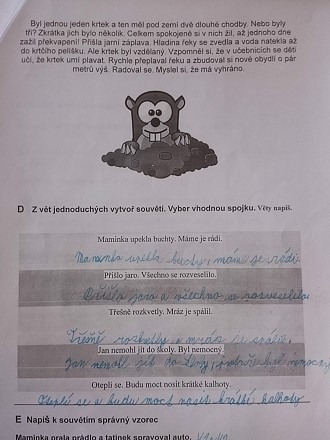 Byl jednou jeden krtek a ten měl pod zemí dvě dlouhé chodby. Nebo byly
tři? Zkrátka jich bylo několik. Celkem spokojeně si v nich žil, až jednoho dne
zažil překvapení! Přišla jarní záplava. Hladina řeky se zvedla a voda natekla až
do krtčího pelíšku. Ale krtek byl vzdělaný. Vzpomněl si, že v učebnicích se děti
učí, že krtek umí plavat. Rychle přeplaval řeku a zbudoval si nové obydlí o pár
metrů výš. Radoval se. Myslel si, že má vyhráno.
D Z vět jednoduchých vytvoř souvětí. Vyber vhodnou spojku. Věty napiš.
Maminka upekla buchty. Máme je rádi.
Maminka upekla buchty, máme je rádi.
Přišlo jaro. Všechno se rozveselilo.
Přišlo jaro a všechno se rozveselilo.
Třešně rozkvetly. Mráz je spálil.
Třešně rozkvetly a mráz je spálil.
Jan nemohl jít do školy. Byl nemocný.
Jan nemohl jít do školy, protože byl nemocný
Oteplí se. Budu moct nosit krátké kalhoty.
Oteplí se a budu moct nosit krátké kalhoty
E Napiš k souvětím správný vzorec
Maminka prala prádlo a tatínek spravoval auto.